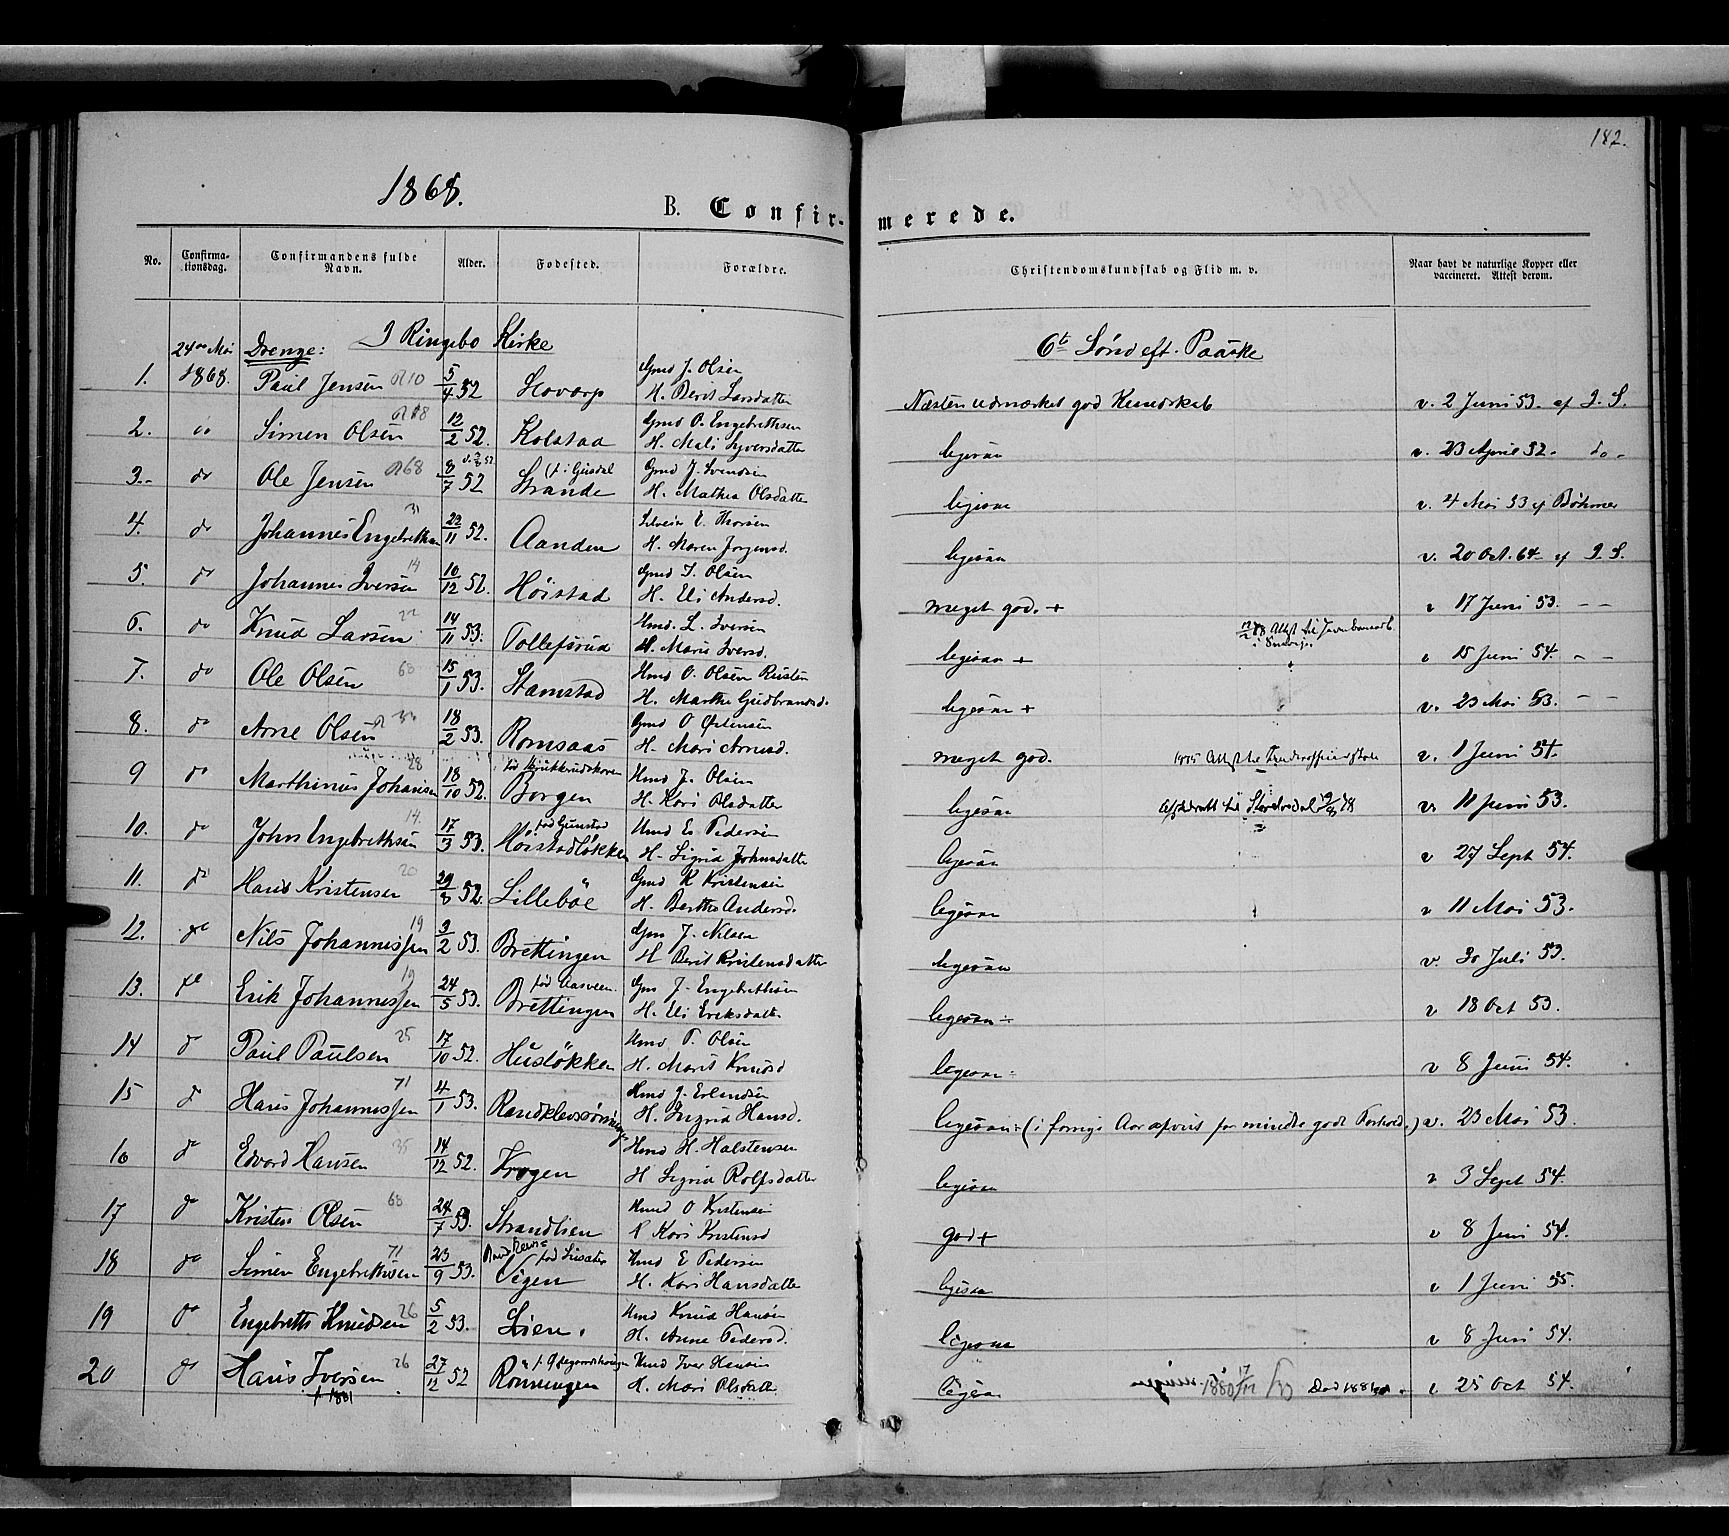 182.
1868.
B. Confirmerede.
No. Confirmationsdag. Confirmandens fulde Navn. Alder. Fødested. Forældre. Christendomskundskab og Flid m. v. Naar havt de naturlige Kopper eller vaccineret. Attest derom.
24de Mai Drenge: I Ringebo Kirke 6te Sønd eft. Paaske
1. 1868. Paul Jensen 5/4 52 Gmd J. Olsen H. Berit Larsdatter Næsten udmærket god Kundskab v. 2 Juni 53. af I. S.
2. Simen Olsen 12/2 52. Kolstad Gmd O. Engebrethsen H. Mali Syversdatter ligesaa v. 23 April 52. do
3. do Ole Jensen 68 8/7 52 Strande Gmd J. Svendsen H. Mathea Olsdatter ligesaa v. 4 Mai 53 af Bøhmer
4. do Johannes Engebrethsen 31 22/11 52. Aanden E. Thorsen H. Maren Jørgensd. ligesaa v. 20 Oct. 64 af I. S.
5. do Johannes Iversen 14 10/12 52. Høistad Gmd I. Olsen H. Eli Andersd. meget god. + v 17 Juni 53. – –
6. do Knud Larsen 22 14/11 53. Tollefsrud Hmd. L. Iversen H. Marie Iversd. ligesaa + v 15 Juni 54. – –
7. do Ole Olsen 68 15/1 53. Stamstad Hmd O. Olsen Rusten H. Marthe Gudbrandsd. ligesaa + v. 23 Mai 53. – –
8. do Arne Olsen 18/2 53. Romsaas Gmd O Østensen H. Mari Arnesd. meget god. v. 1 Juni 54.
9 do Marthinus Johansen 28 18/10 52. Borgen Hmd J. Olsen H. Kari Olsdatter ligesaa v. 11 Juni 53.
10. do John Engebrethsen 14. 17/3 53. Høistadløkken Hmd E. Pedersen H. Sigrid Johnsdatter ligesaa v 27 Sept 54.
11. do Hans Kristensen 20 29/8 52. Lillebøe Gmd K Kristensen H. Berthe Andersd. ligesaa v 11 Mai 53.
12. do Nils Johannessen 19 3/2 53. Brettingen Gm J. Nilsen H Berit Kristensdatter ligesaa v. 30 Juli 53.
13. do Erik Johannessen 19 24/5 53. Brettingen Gm J. Engebrethsen H. Eli Eriksdatter ligesaa v 18 Oct 53.
14 do Paul Paulsen 25 17/10 52. Husløkken Hmd P. Olsen H. Marit Knudsd ligesaa v 8 Juni 54.
15 do Hans Johannessen 71 4/1 53. Hmd J. Erlandsen H. Ingrid Hansd. ligesaa (i forrige Aar afvist for mindre godt Forhold.) v. 23 Mai 53.
16 do Edvard Hansen 35 14/12 52. Krogen Hmd H. Halstensen H Sigrid Rolfsdatter ligesaa v 3 Sept 54.
17 do Kristen Olsen 68 24/7 53. Strandlien Hmd O Kristensen H Kari Kristensd god + v 8 Juni 54.
18 do Simen Engebrethsen 71 23/9 53. Vegen Hmd E Pedersen H. Kari Hansdatter ligesaa v 1 Juni 55.
19 do Engebreth Knudsen 26 5/2 53. Lien. Hmd Knud Hansen H. Anne Pedersd. ligesaa v 8 Juni 54.
20 do Hans Iversen 26 27/12 52 Rønningen Hmd Iver Hansen H. Mari Olsdatt. ligesaa Død 1881 v 25 Oct 54.
† 1881